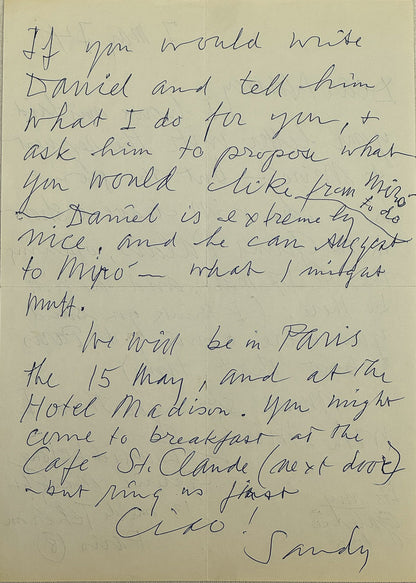 If you would write
Daniel and tell him
what I do for you, +
ask him to propose what
you would like from Miró
to do
— Daniel is extremely
nice, and he can suggest
to Miró — what I might
muff.
We will be in Paris
the 15 May, and at the
Hotel Madison. You might
come to breakfast at the
Café St. Claude (next door)
— but ring us first
Ciao!
Sandy